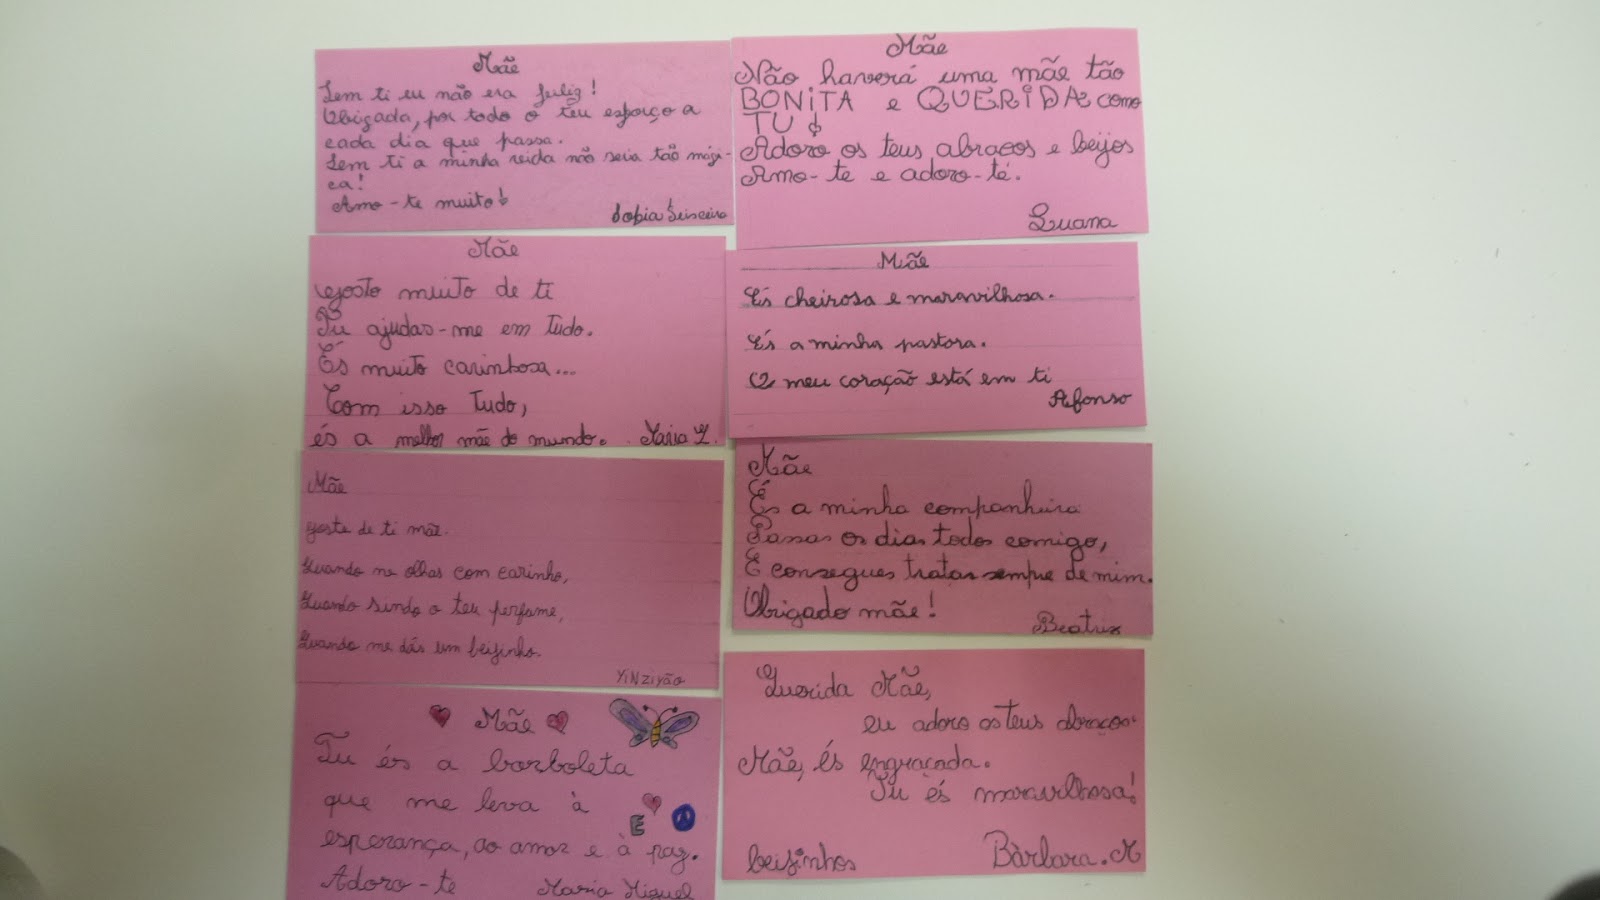 Mãe
Sem ti eu não era feliz!
Obrigada, por todo o teu esforço a
cada dia que passa.
Sem ti a minha vida não seria tão mági-
ca!
Amo-te muito!
Sofia Teixeira
Mãe
Não haverá uma mãe tão
BONiTA e QUERiDA como
TU!
Adoro os teus abraços e beijos
Amo-te e adoro-te.
Luana
Mãe
Gosto muito de ti
Tu ajudas-me em tudo.
És muito carinhosa...
Com isso tudo,
és a melhor mãe do mundo. Maria L.
Mãe
És cheirosa e maravilhosa.
És a minha pastora.
O meu coração está em ti
Afonso
Mãe
Gosto de ti mãe.
Quando me olhas com carinho,
Quando sindo o teu perfume,
Quando me dás um beijinho.
YiNziyão
Mãe
És a minha companheira
Passas os dias todos comigo,
E consegues tratar sempre de mim.
Obrigado mãe!
Beatriz
Mãe
Tu és a borboleta
que me leva à
E
esperança, ao amor e à paz.
Adoro-te Maria Miguel
Querida Mãe,
eu adoro os teus abraços.
Mãe, és engraçada.
Tu és maravilhosa!
beijinhos Bàrbara.M